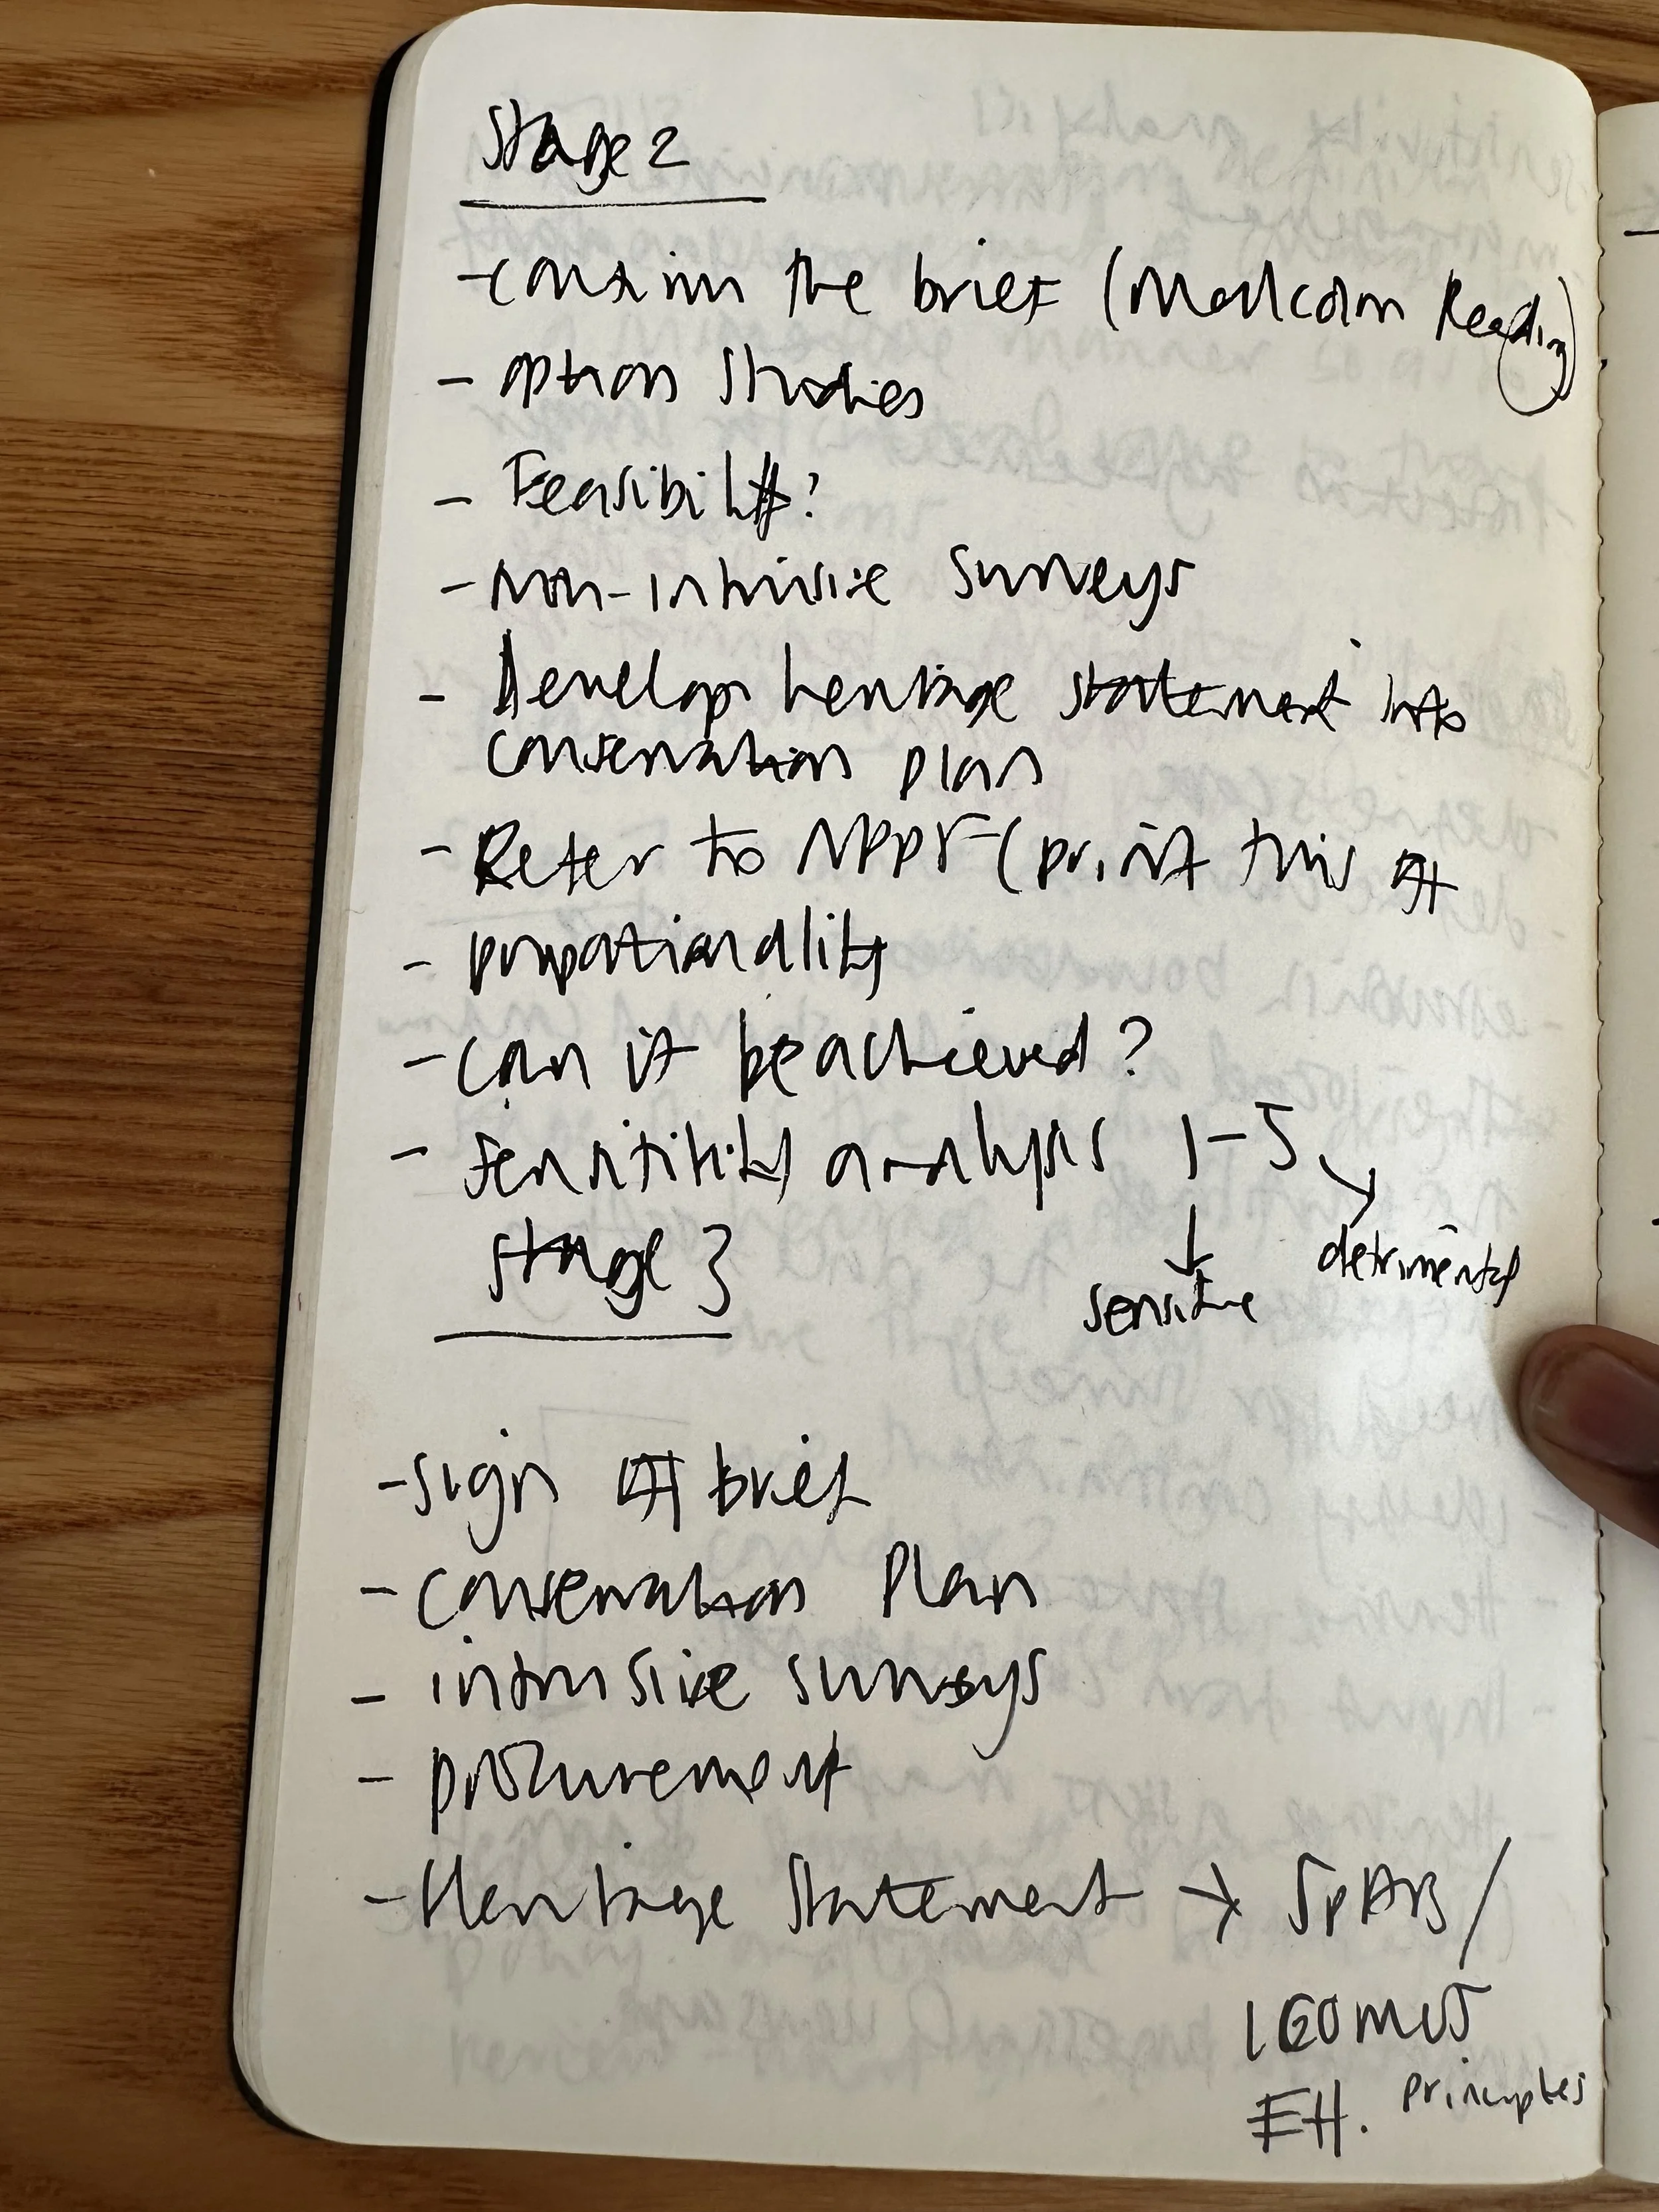 Stage 2
- confirm the brief (Malcolm Reading)
- option studies
- Feasibility?
- Non-intrusive surveys
- Develop heritage statement into
conservation plan
- Refer to NPPF (print this off
- proportionality
- can it be achieved?
- sensitivity analysis 1-5
↓ sensitive ↘ detrimental
Stage 3
- sign off brief
- conservation Plan
- intrusive surveys
- procurement
- Heritage Statement → SPAB/
ICOMOS
EH. principles